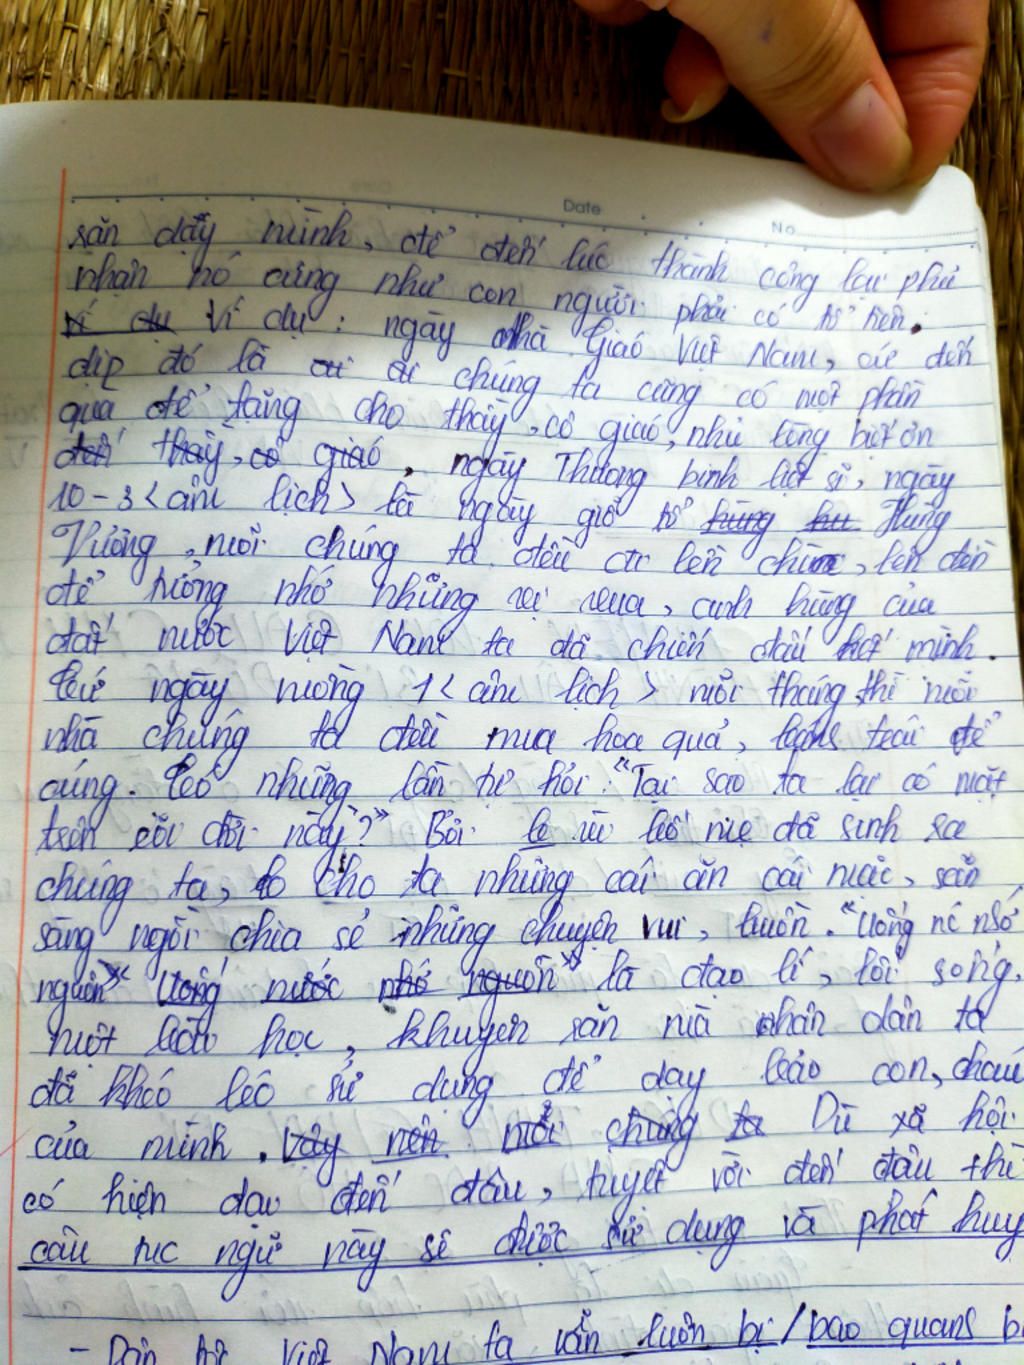 Date
No
săn dắy mình, để đến lúc thành công lại phủ
nhận nó cũng như con người phải có tổ tiên.
ví dụ Ví dụ : ngày nhà Giáo Việt Nam, cứ đến
dịp đó là chúng ta cũng có một phần
quà để tặng cho thầy, cô giáo, như lòng biết ơn
đến thầy, cô giáo, ngày Thương binh liệt sĩ, ngày
10 - 3 < âm lịch > là ngày giỗ tổ hùng Hùng
Vương, mỗi chúng ta đều lên chùa, lên đền
để tưởng nhớ những vị vua, anh hùng của
đất nước Việt Nam ta đã chiến đấu hết mình.
Cứ ngày mồng 1 < âm lịch > mỗi tháng thì mỗi
nhà chúng ta đều mua hoa quả, để
cúng. Có những lần tự hỏi : "Tại sao ta lại có mặt
trên cõi đời này?" Bởi vì bố mẹ đã sinh ra
chúng ta, cho ta những cái ăn cái mặc, sẵn
sàng ngồi chia sẻ những chuyện vui, buồn. "Uống nc nhớ
nguồn" Uống nước nhớ nguồn" là đạo lí, lối sống,
một bài học, khuyên răn mà nhân dân ta
đã khéo léo sử dụng để dạy bảo con, cháu
của mình. Vậy nên mỗi chúng ta Dù xã hội
có hiện đại đến đâu, tuyệt vời đến đâu thì
câu tục ngữ này sẽ được sử dụng và phát huy
- Dân tộc Việt Nam ta vẫn luôn bị / bao quanh